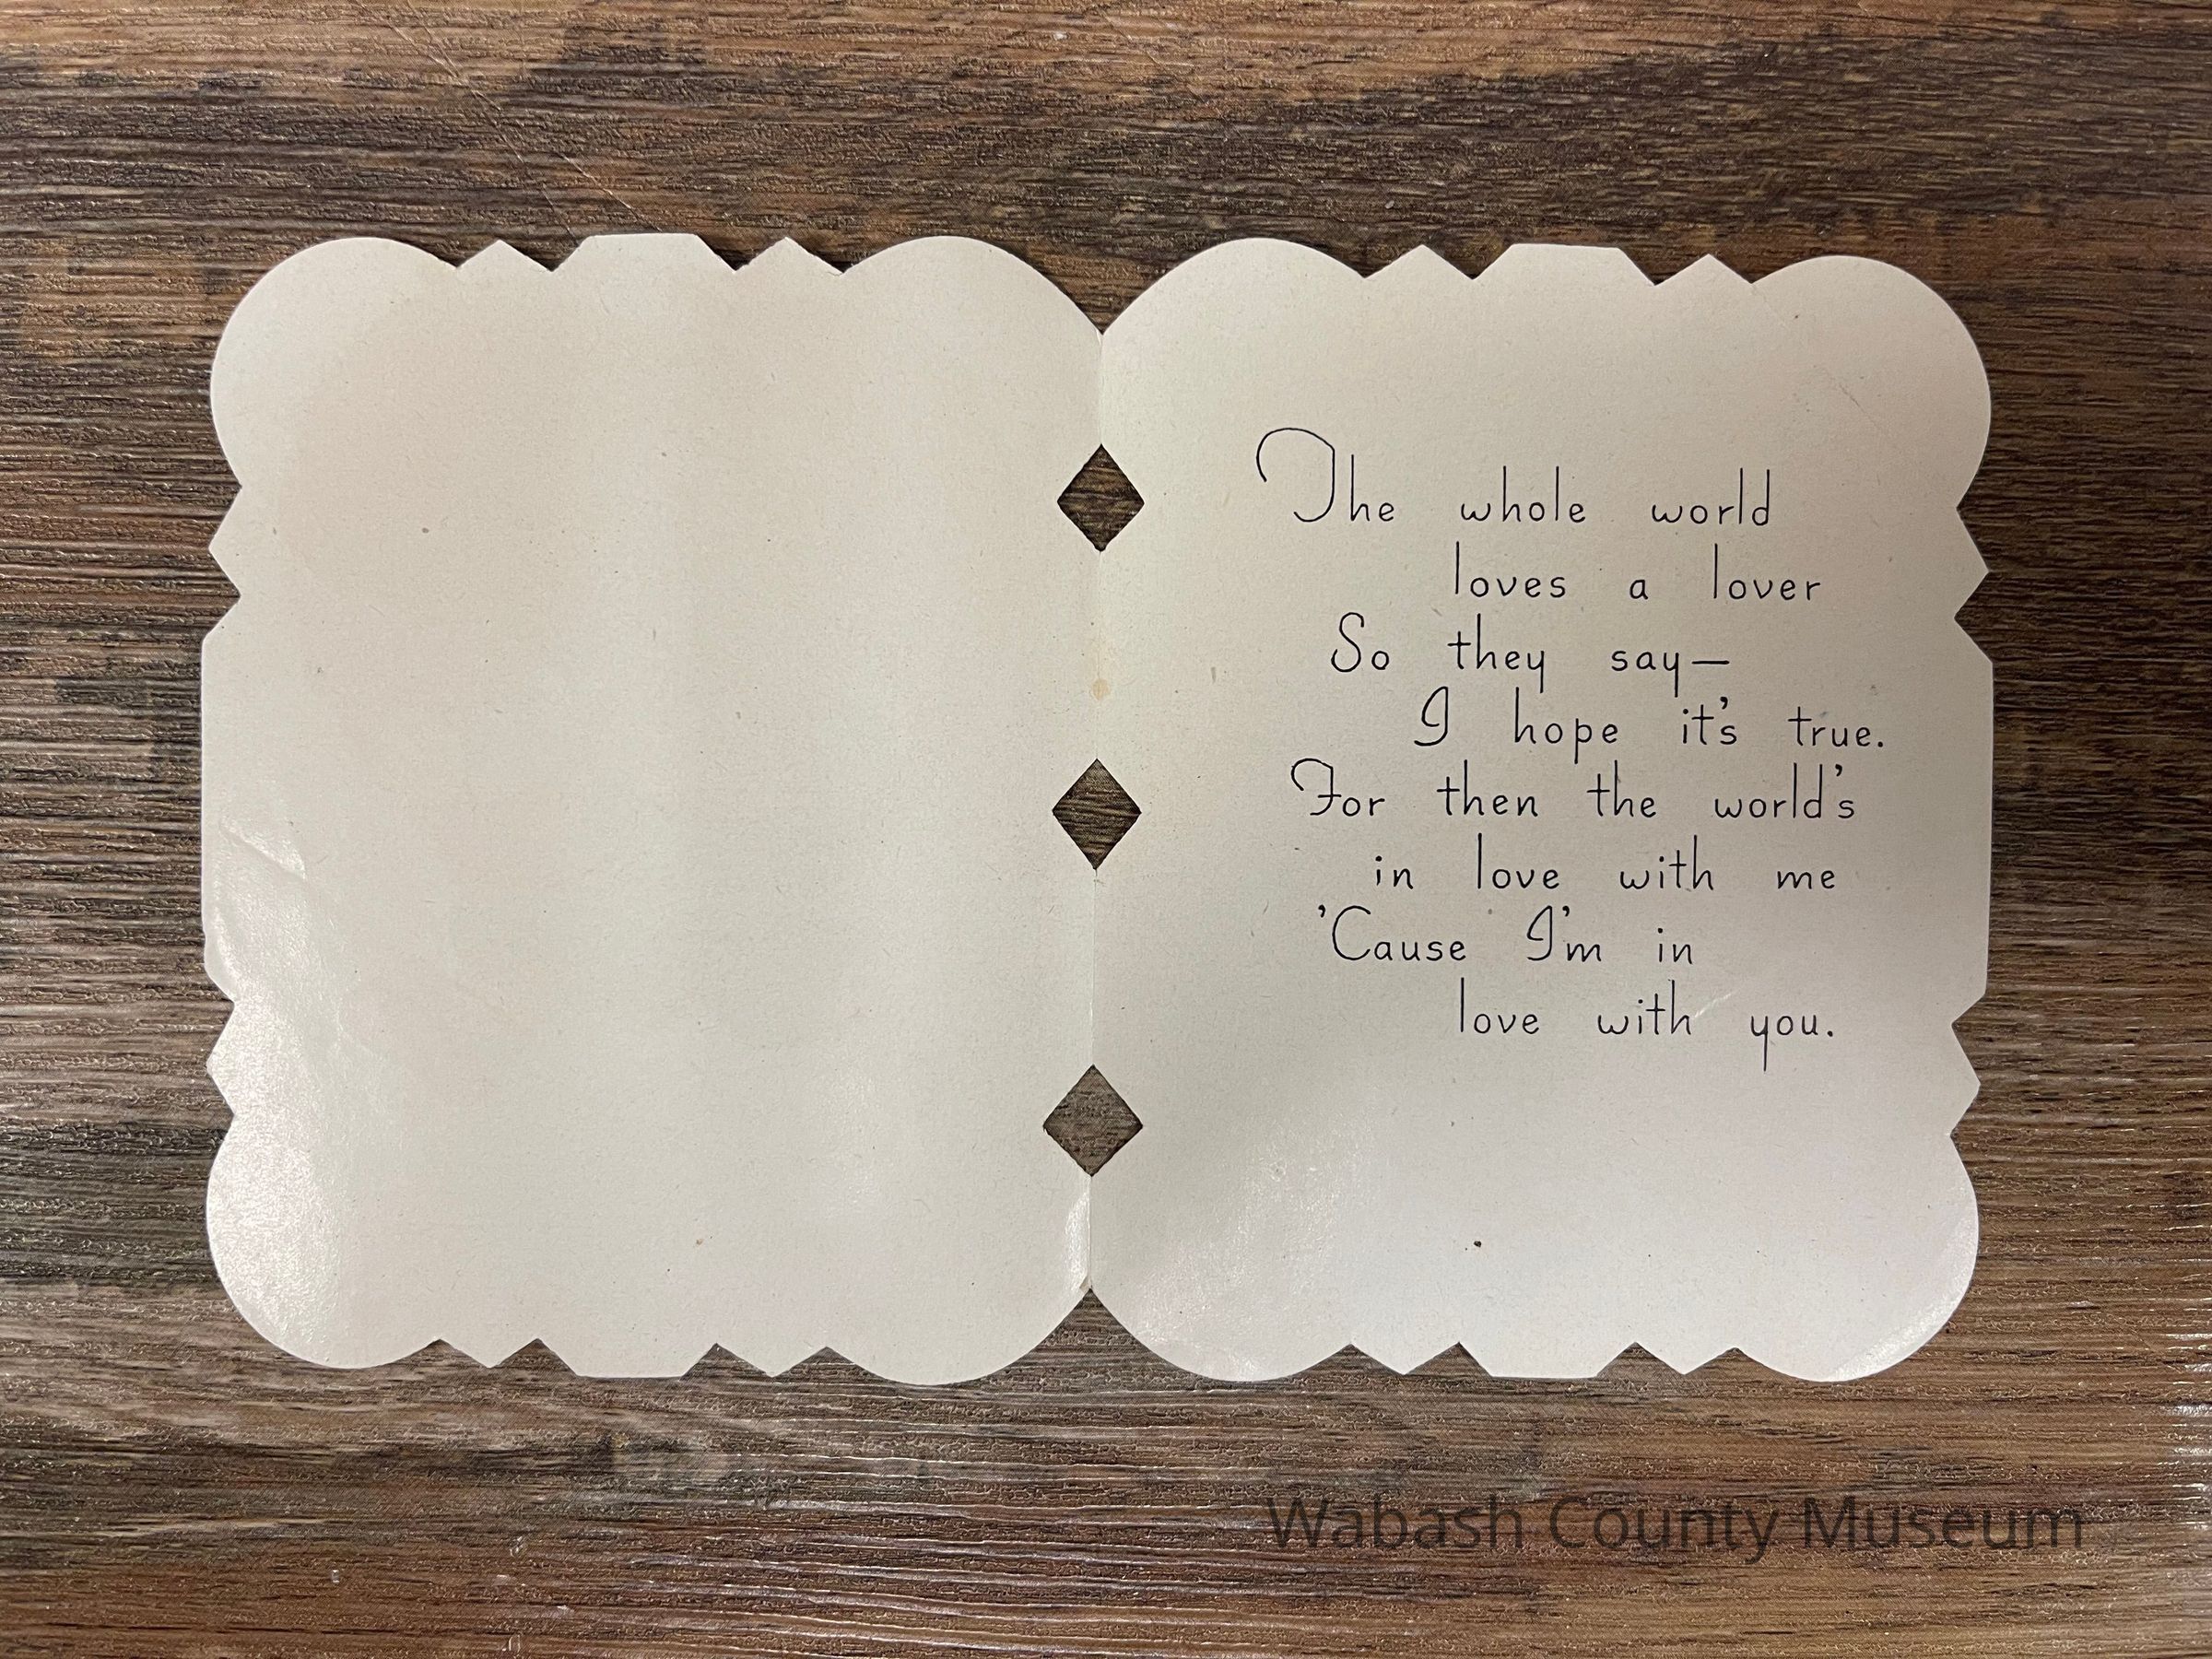 The whole world
loves a lover
So they say—
I hope it's true.
For then the world's
in love with me
'Cause I'm in
love with you.
Wabash County Museum